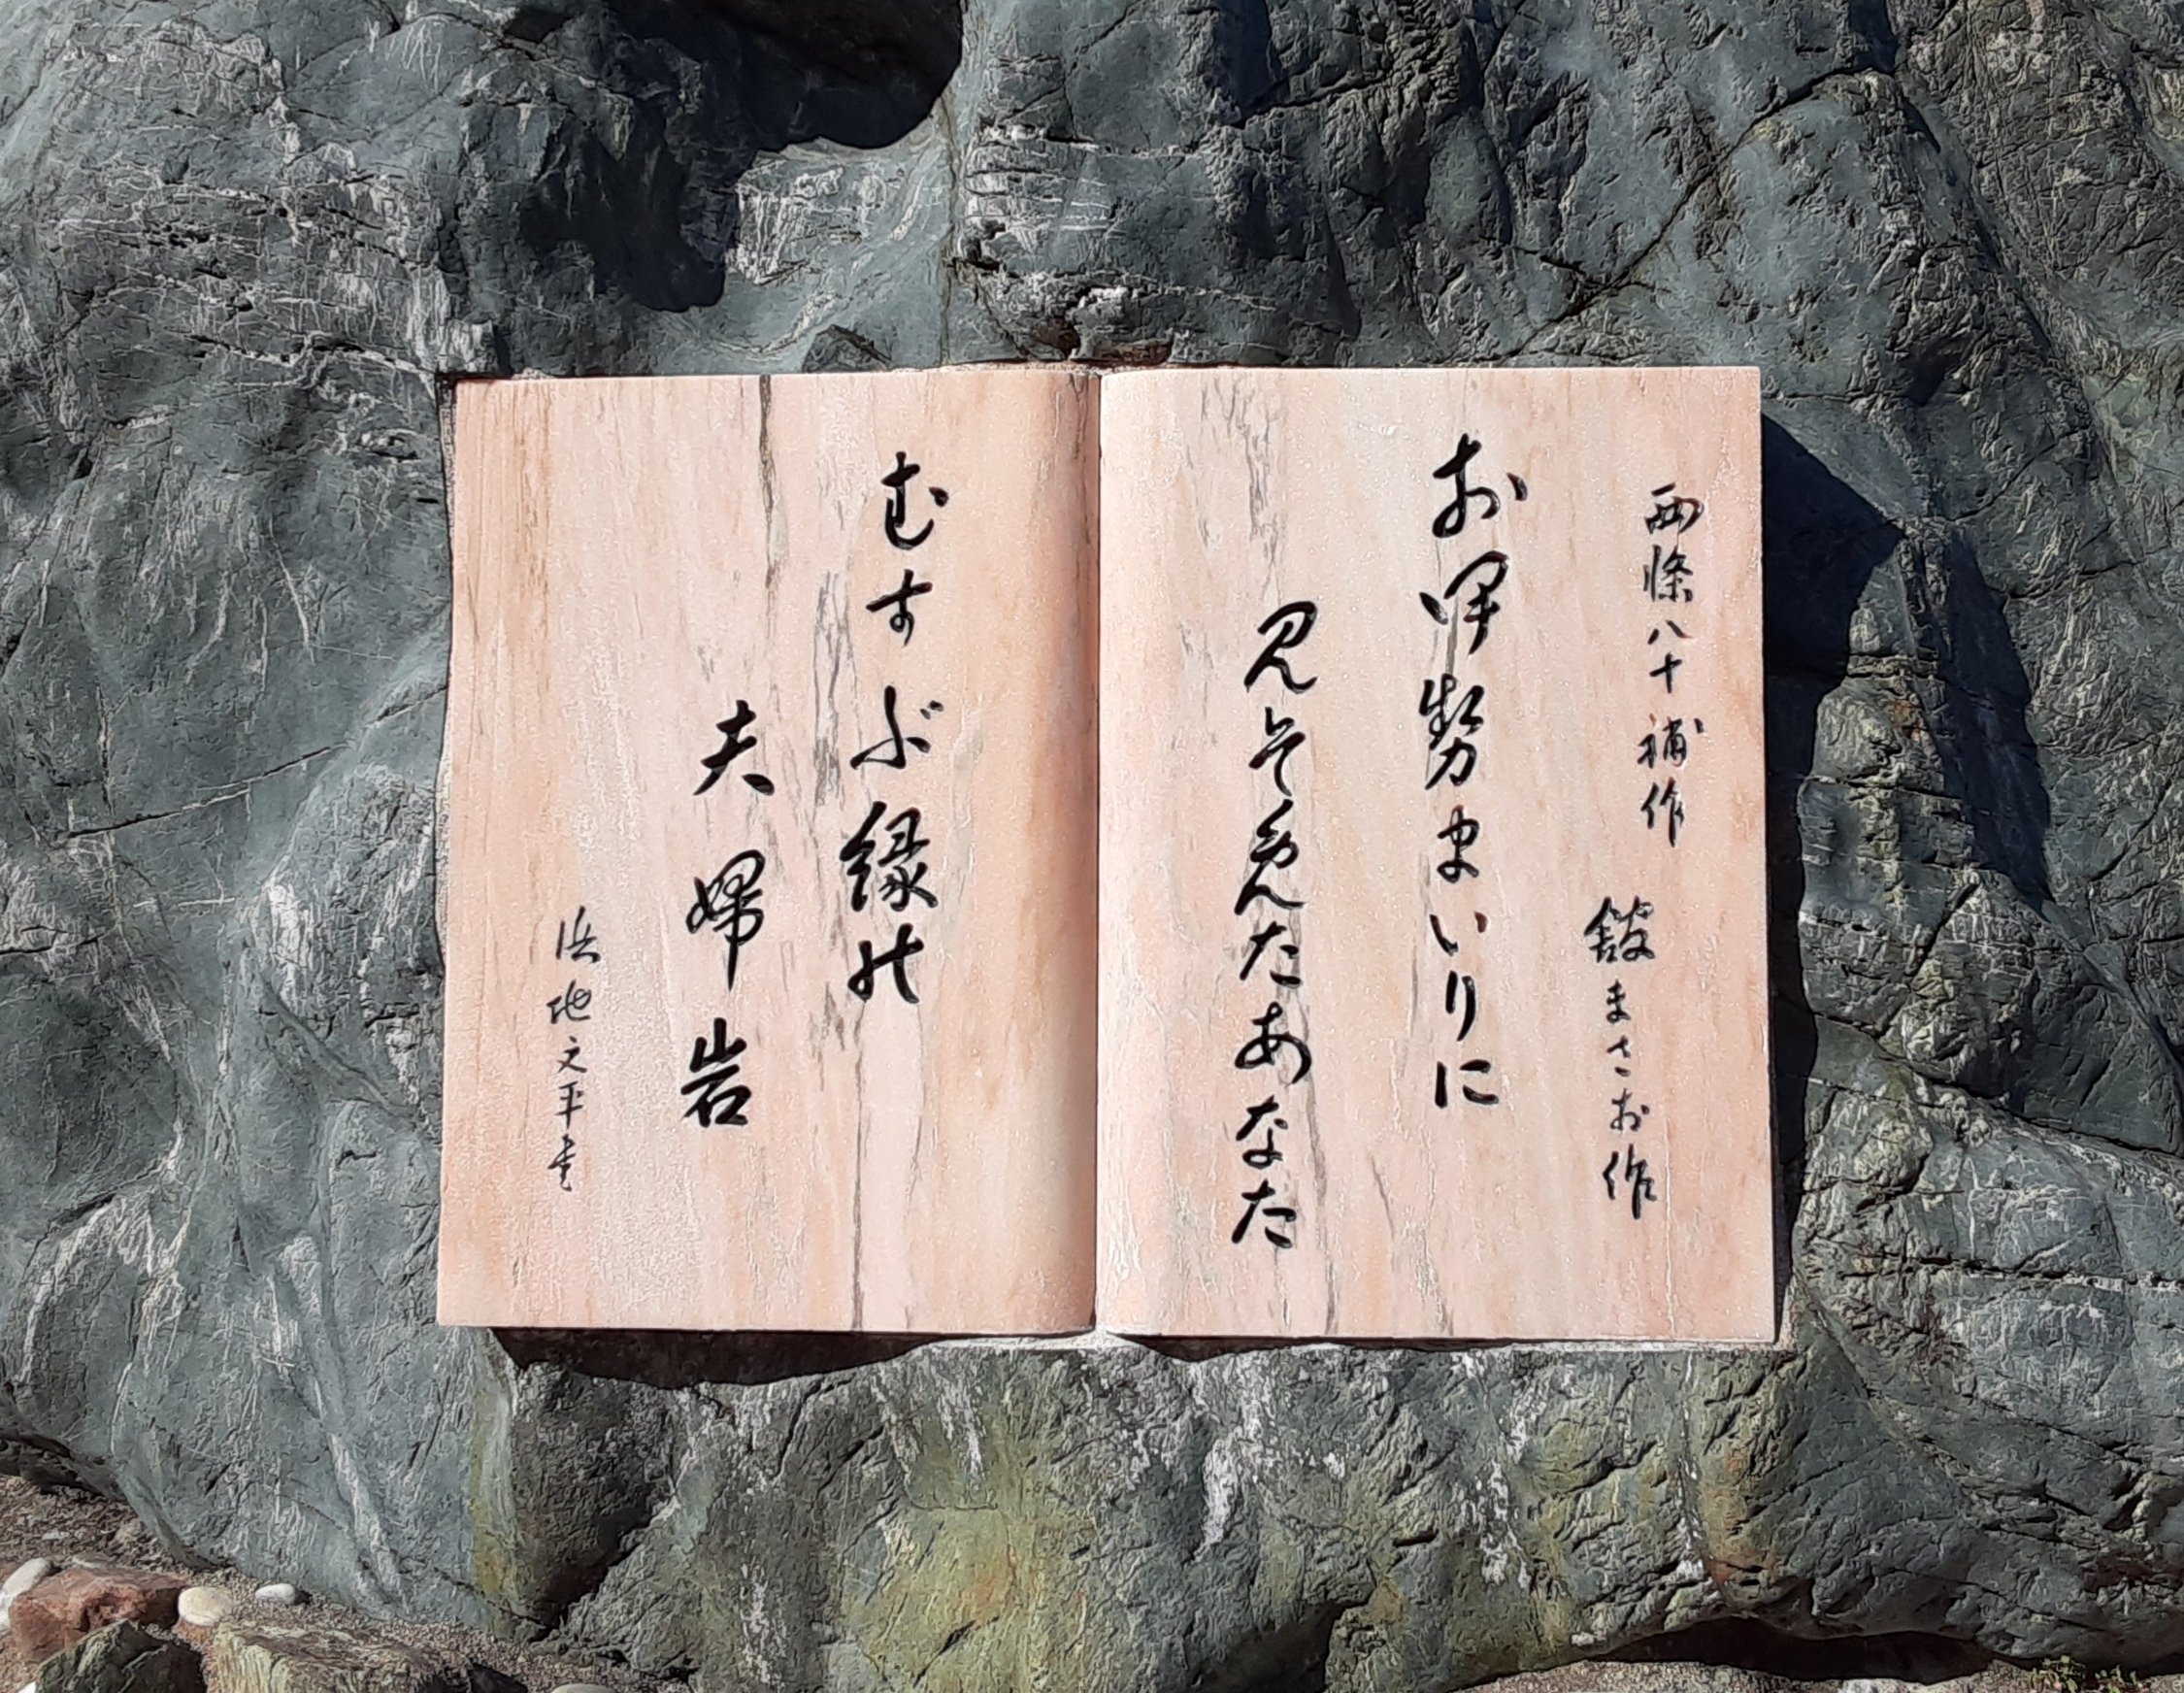 西條八十補作
まさお作
お伊勢まいりに
見そめたあなた
むすぶ縁の
夫婦岩
浜地文平書